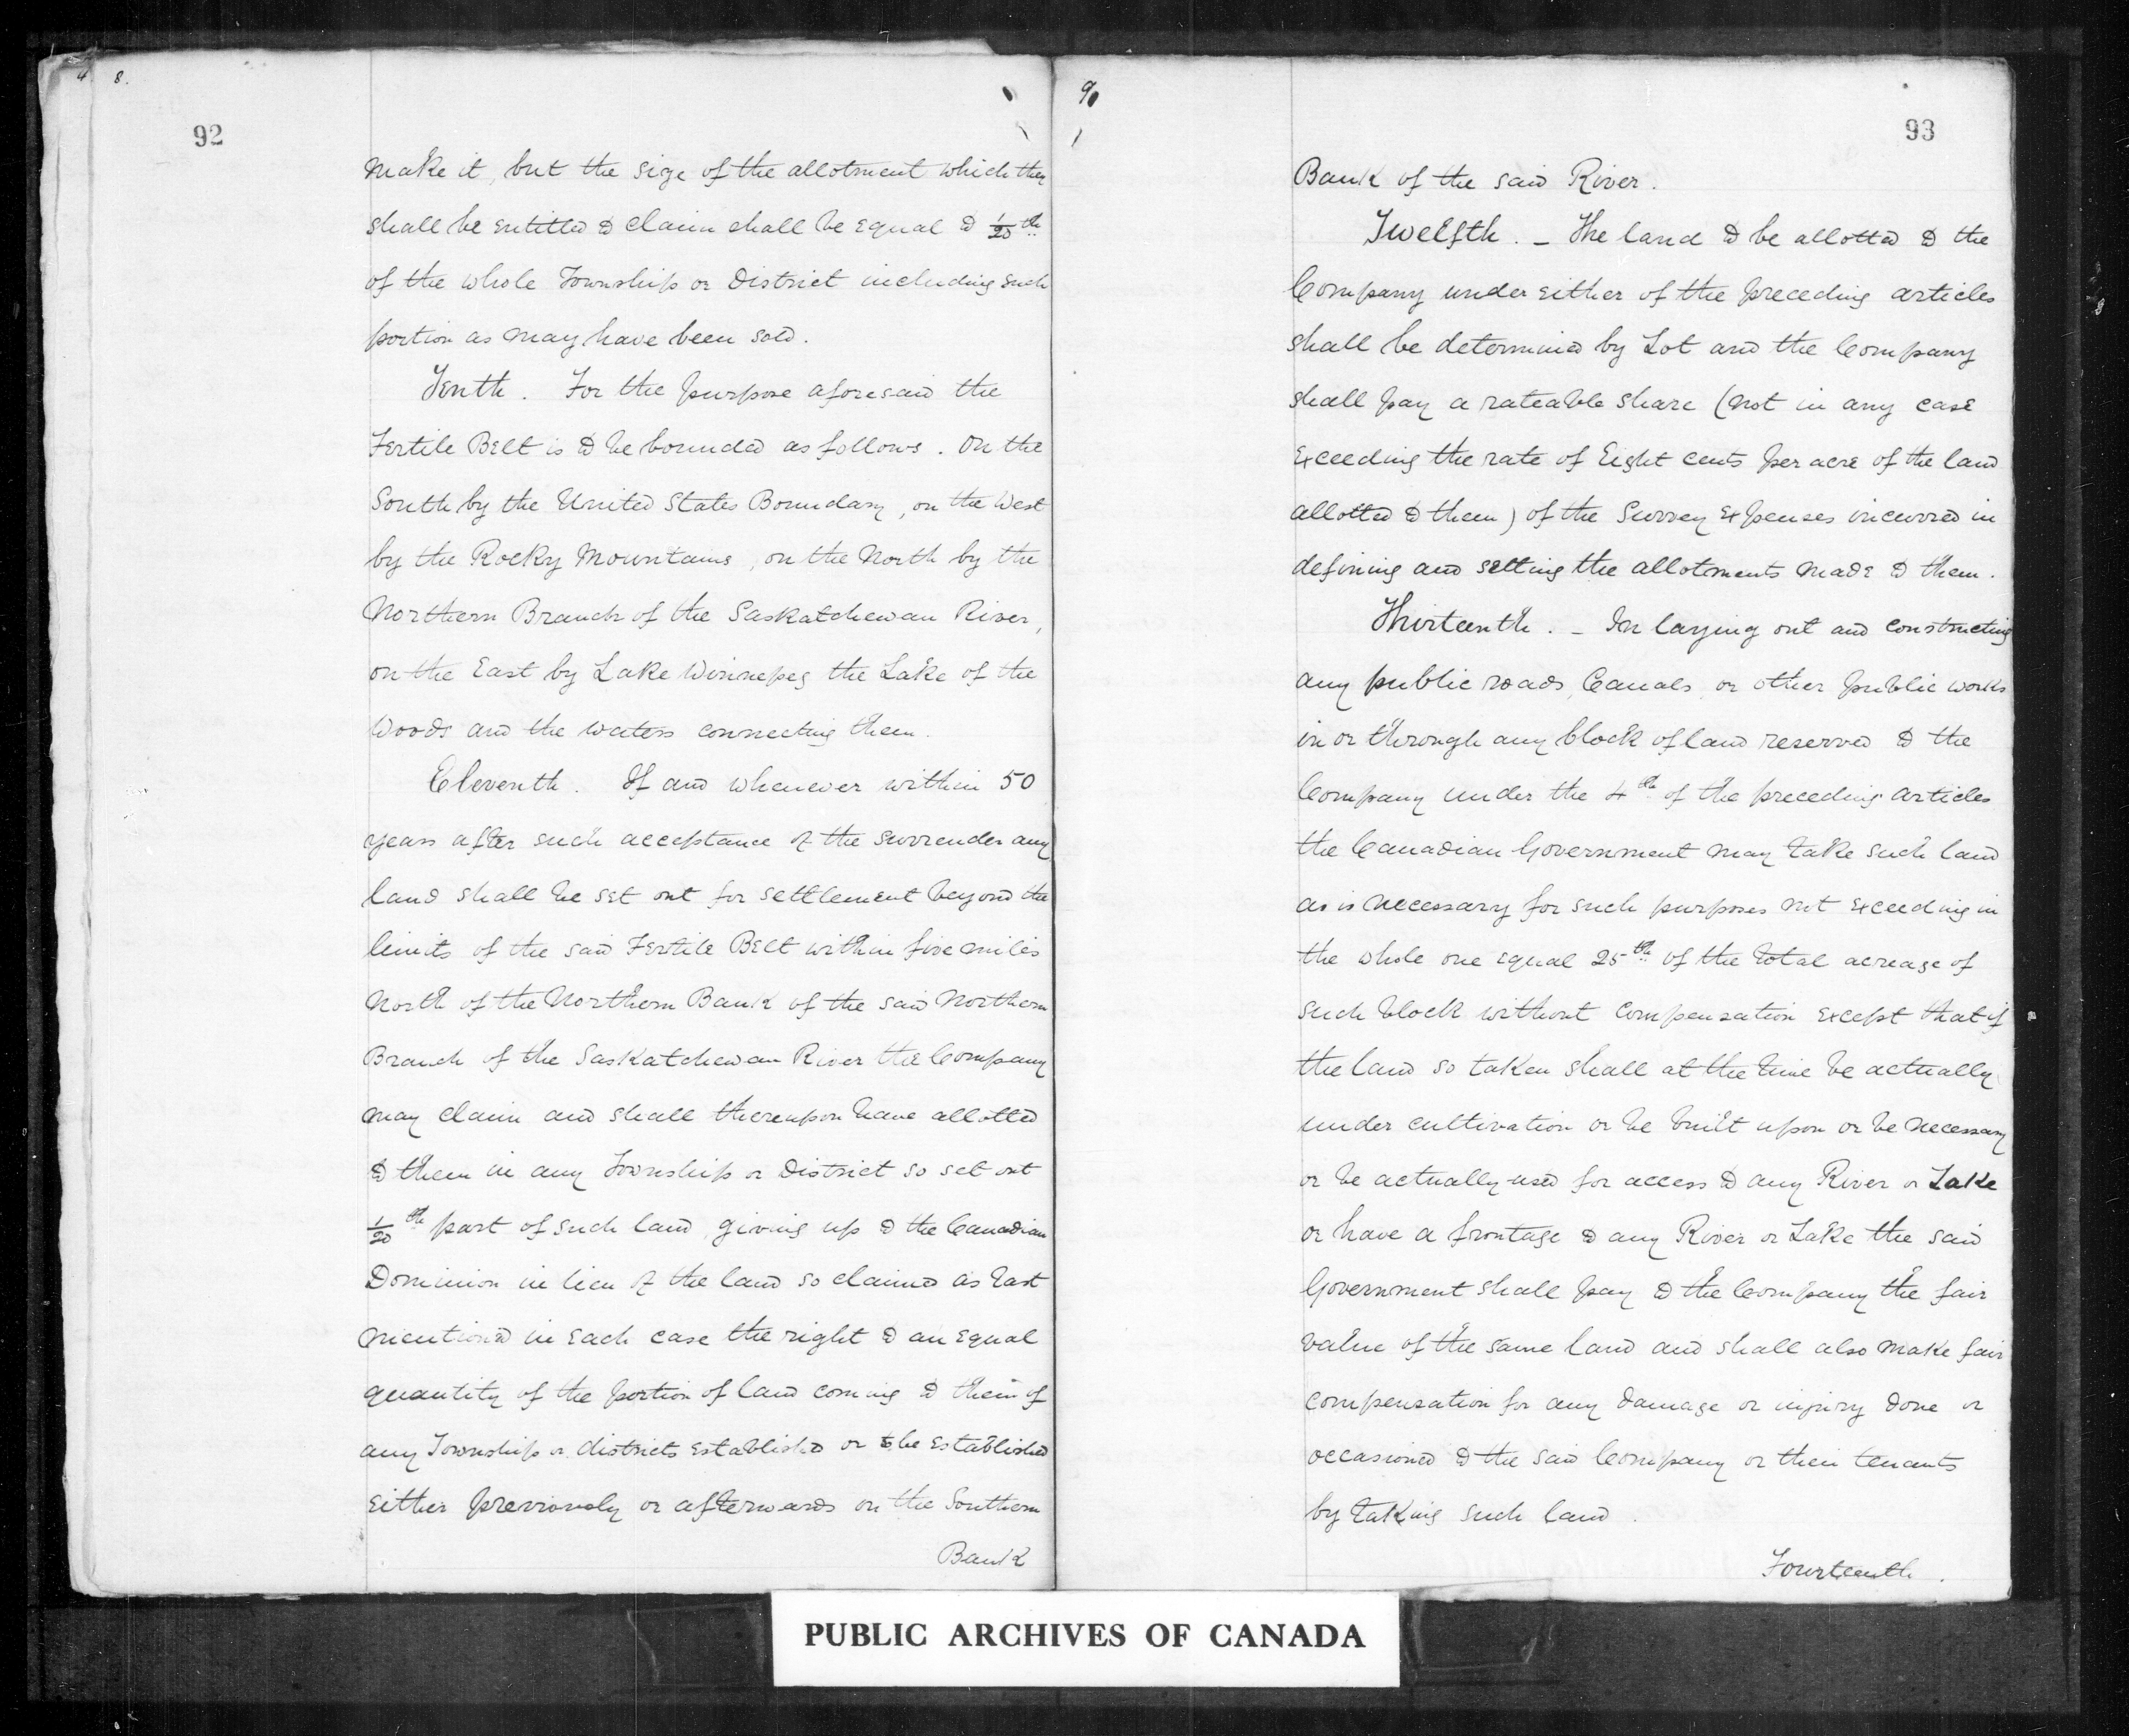 4 8.
92
make it, but the size of the allotment which they
shall be entitled to claim shall be equal to 1/20th
of the whole Township or District including such
portion as may have been sold.
Tenth. For the purpose aforesaid the
Fertile Belt is to be bounded as follows. On the
South by the United States Boundary, on the West
by the Rocky Mountains, on the North by the
Northern Branch of the Saskatchewan River,
on the East by Lake Winnepeg the Lake of the
Woods and the waters connecting them.
Eleventh. If and whenever within 50
years after such acceptance of the surrender any
land shall be set out for settlement beyond the
limits of the said Fertile Belt within five miles
North of the Northern Bank of the said Northern
Branch of the Saskatchewan River the Company
may claim and shall thereupon have allotted
to them in any Township or District so set out
1/20th part of such land, giving up to the Canadian
Dominion in lieu of the land so claimed as last
mentioned in each case the right to an equal
quantity of the portion of land coming to them of
any Township or districts established or to be established
either previously or afterwards on the Southern
Bank
9
93
Bank of the said River.
Twelfth. – The land to be allotted to the
Company under either of the preceding articles
shall be determined by Lot and the Company
shall pay a rateable share (not in any case
exceeding the rate of Eight cents per acre of the land
allotted to them) of the Survey Expenses incurred in
defining and setting the allotments made to them.
Thirteenth. – In laying out and constructing
any public roads, Canals, or other public works
in or through any block of land reserved to the
Company under the 4th of the preceding articles
the Canadian Government may take such land
as is necessary for such purposes not exceeding in
the whole one equal 25th of the total acreage of
such block without compensation except that if
the land so taken shall at the time be actually
under cultivation or be built upon or be necessary
or be actually used for access to any River or Lake
or have a frontage to any River or Lake the said
Government shall pay to the Company the fair
value of the same land and shall also make fair
compensation for any damage or injury done or
occasioned to the said Company or their tenants
by taking such land.
Fourteenth.
PUBLIC ARCHIVES OF CANADA